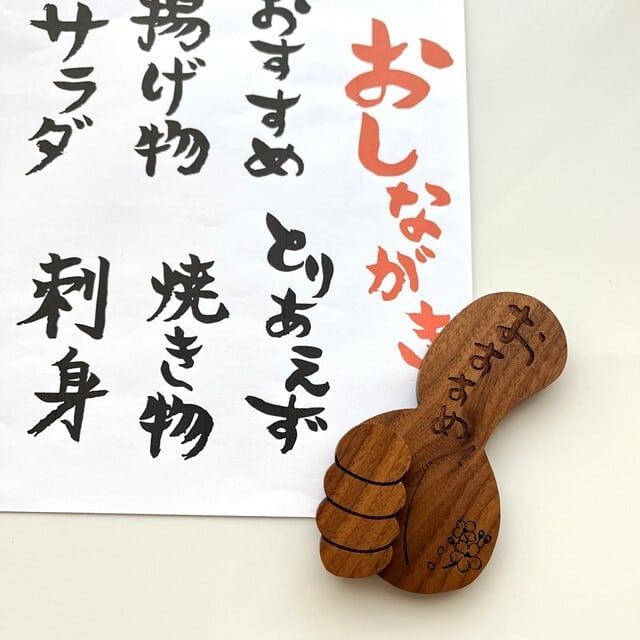 おしながき
おすすめ
とりあえず
揚げ物
焼き物
サラダ
刺身
おすすめ!